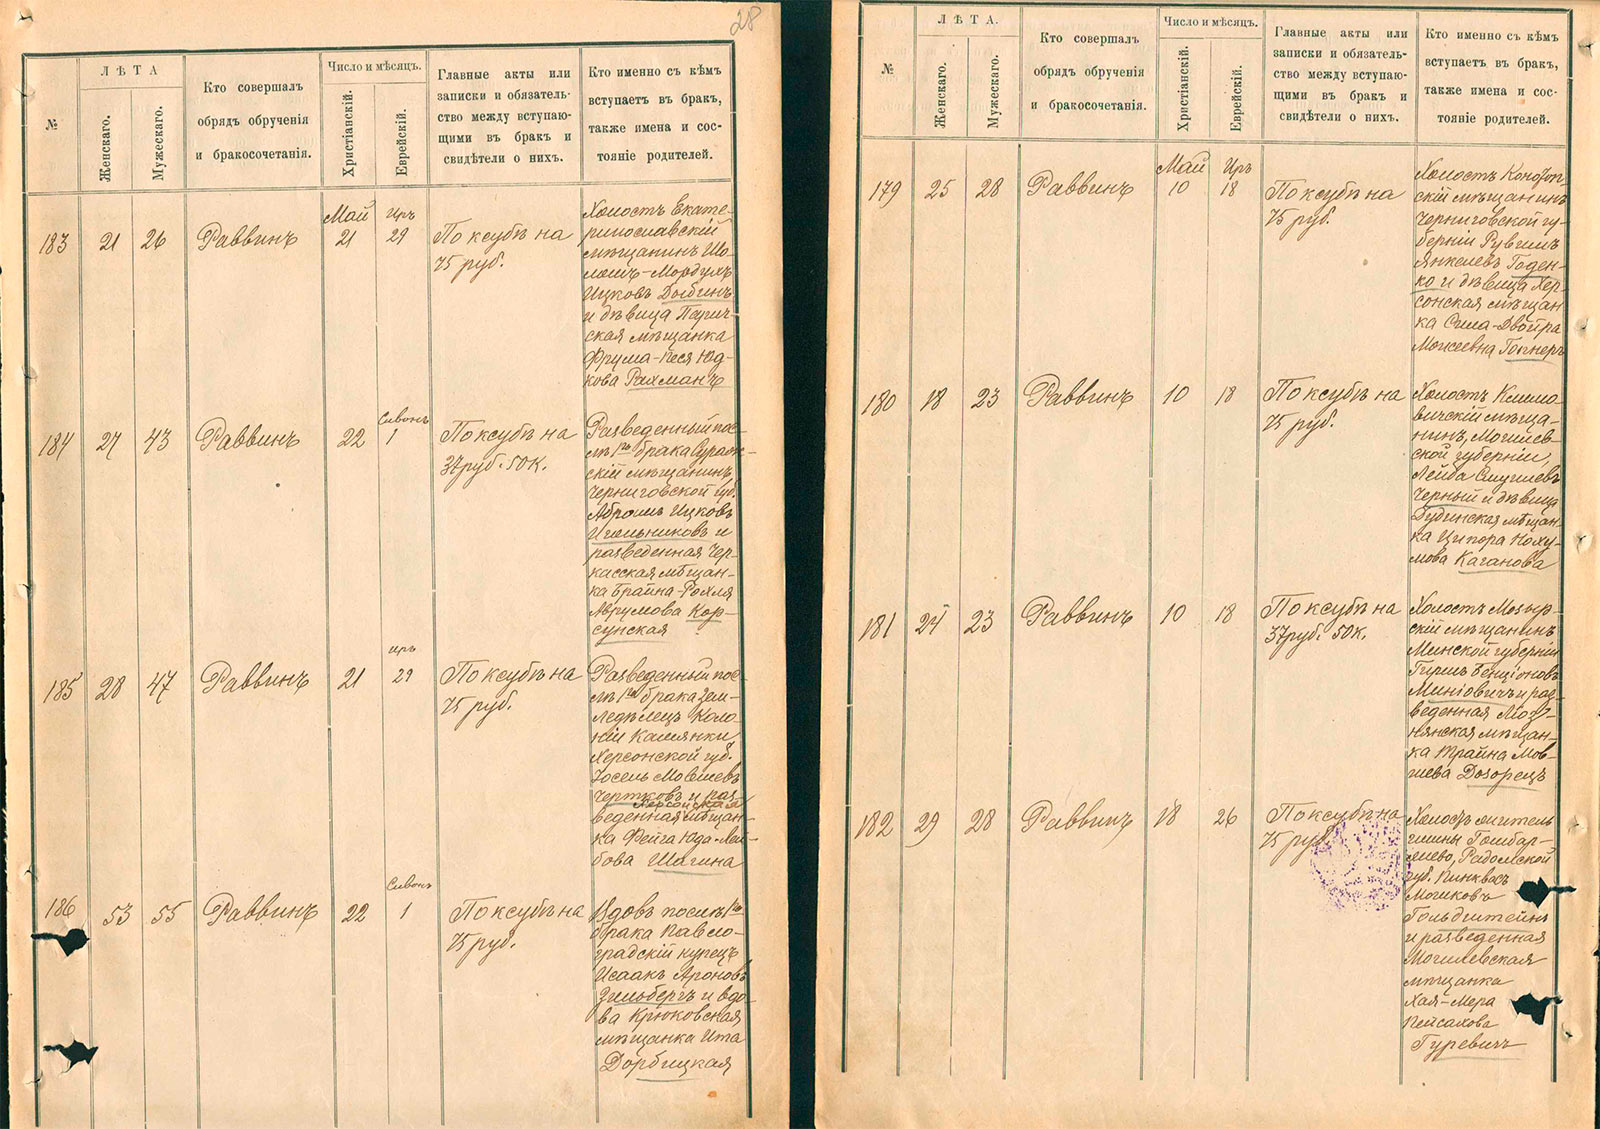 28
№
ЛѢТА
Женскаго.
Мужескаго.
Кто совершалъ
обрядъ обрученія
и бракосочетанія.
Число и мѣсяцъ.
Христіанскій.
Еврейскій.
Главные акты или
записки и обязатель-
ство между вступаю-
щими въ бракъ и
свидѣтели о нихъ.
Кто именно съ кѣмъ
вступаетъ въ бракъ,
также имена и сос-
тояніе родителей.
183
21
26
Раввинъ
Май
21
Иръ
29
По ксубѣ на
75 руб.
Холостъ Екате-
ринославскій
мѣщанинъ Шо-
ломъ-Мордухъ
Ицковъ
и дѣвица Парич-
ская мѣщанка
Фрума-Песя Юд-
кова Рахманъ
184
27
43
Раввинъ
22
Сивонъ
1
По ксубѣ на
37 руб. 50 к.
Разведенный пос-
лѣ 1го брака Сураж-
скій мѣщанинъ
Черниговской губ.
Абрамъ Ицковъ
Игольниковъ и
разведенная Чер-
касская мѣщан-
ка Брайна-Рохля
Аврумова Кор-
сунская
185
28
47
Раввинъ
21
Иръ
29
По ксубѣ на
75 руб.
Разведенный пос-
лѣ 1го брака Зем-
ледѣлецъ Коло-
ніи Камянки
Херсонской губ.
Іосель Мовшевъ
Чертковъ и раз-
Херсонская
веденная мѣщан-
ка Фейга Юда-Лей-
бова Шагина
186
53
55
Раввинъ
22
Сивонъ
1
По ксубѣ на
75 руб.
Вдовъ послѣ 1го
брака Павло-
градскій купецъ
Исаакъ Ароновъ
Зильбергъ и вдо-
ва Крюковская
мѣщанка Ита
Дорбицкая
№
ЛѢТА.
Женскаго.
Мужескаго.
Кто совершалъ
обрядъ обрученія
и бракосочетанія.
Число и мѣсяцъ.
Христіанскій.
Еврейскій.
Главные акты или
записки и обязатель-
ство между вступаю-
щими въ бракъ и
свидѣтели о нихъ.
Кто именно съ кѣмъ
вступаетъ въ бракъ,
также имена и сос-
тояніе родителей.
179
25
28
Раввинъ
Май
10
Иръ
18
По ксубѣ на
75 руб.
Холостъ Конотоп-
скій мѣщанинъ
Черниговской гу-
берніи Рувимъ
Янкелевъ Годен-
ко и дѣвица Хер-
сонская мѣщан-
ка Сима-Двойра
Моисеевна
180
18
23
Раввинъ
10
18
По ксубѣ на
75 руб.
Холостъ Климо-
вичскій мѣща-
нинъ, Могилев-
ской губерніи,
Лейба Смуилевъ
Черный и дѣвица
Дубинская мѣщан-
ка ЦипораНоху-
мова Каганова
181
24
23
Раввинъ
10
18
По ксубѣ на
37 руб. 50 к.
Холостъ Мозыр-
скій мѣщанинъ
Минской губерніи
Гиршъ Бенціоновъ
Миніовичъ и раз-
веденная Лоз-
нянская мѣщан-
ка Трайна Мов-
шева Дозорецъ
182
29
28
Раввинъ
18
26
По ксубѣ на
75 руб.
Холостъ житель
гмины Гомбар-
жево, Радомской
губ. Пинквасъ
Мошковъ
Гольдштейнъ
и разведенная
Могилевская
мѣщанка
Хая-Мера
Пейсахова
Гуревичъ